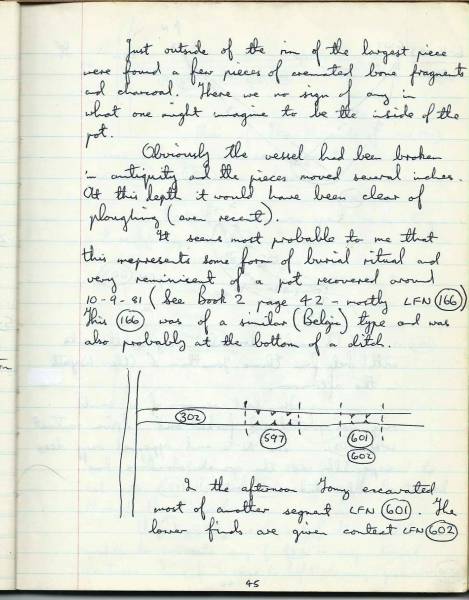 Just outside of the rim of the largest piece
were found a few pieces of cremated bone fragments
and charcoal. There we no sign of any in
what one might imagine to be the inside of the
pot.
Obviously the vessel had been broken
in antiquity and the pieces moved several inches.
At this depth it would have been clear of
ploughing (even recent).
It seems most probable to me that
this represents some form of burial ritual and
very reminiscent of a pot recovered around
10-9-81 (See Book 2 page 42 - mostly LFN 166)
This 166 was of a similar (Belgic) type and was
also probably at the bottom of a ditch.
302
597
601
602
In the afternoon Tony excavated
most of another segment LFN 601. The
lower finds are given context LFN 602
45